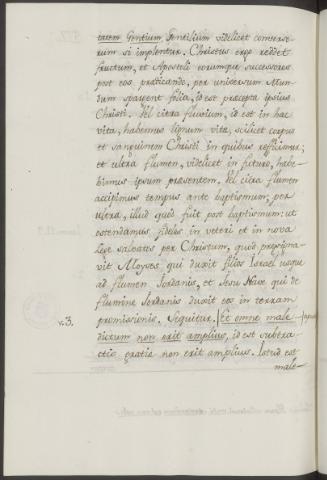 tatem Gentium Gentilium videlicet converse-
rum si implentur. Christus ergo reddet
fructum, et Apostoli eorumque successores
post eos praedicando, per universum Mun
dum spargent folia, id est praecepta ipsius
Christi. Vel citra fluvium, id est in hac
vita, habemus lignum vitae, scilicet corpus
et sanguinem Christi in quibus reficimur;
et ultra flumen, videlicet in futuro, habe-
bimus ipsum praesentem. Vel citra flumen
accipimus tempus ante baptismum; per
ultra, illud quod fuit post baptismum: ut
ostendamus fideles in veteri et in nova
Lege salvatos per Christum, quod praesigna-
vit Moyses qui duxit filios Israel usque
ad flumen Jordanis, et Jesu Nave qui de
flumine Jordanis duxit eos in terram
promissionis. Sequitur. Et omne male-
v. 3.
dictum non erit amplius, id est subtra-
ctio gratiae non erit amplius. Istud est
male-